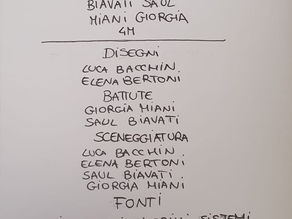 BIAVATI SAUL
MIANI GIORGIA
4M
DISEGNI
LUCA BACCHIN.
ELENA BERTONI
BATTUTE
GIORGIA MIANI
SAUL BIAVATI
SCENEGGIATURA
LUCA BACCHIN.
ELENA BERTONI.
SAUL BIAVATI.
GIORGIA MIANI
FONTI
SISTEMI